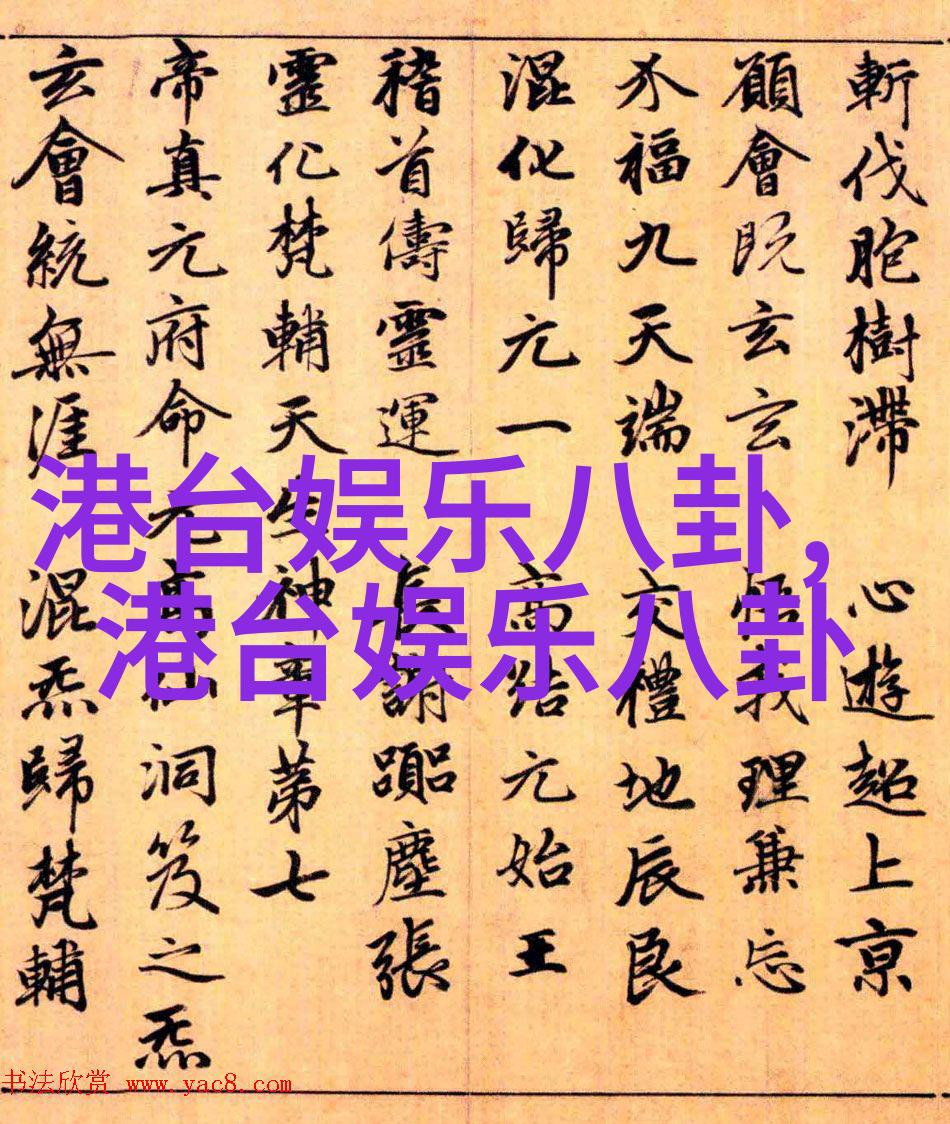 斬伐胞樹滯 心遊超上京
願會既玄玄 悟我理兼忘
介福九天端 交禮地辰良
混化歸元一 高結元始王
稽首儔靈運 長謝塵張
靈化梵輔天生神章第七
帝真元府命元高仙洞笈之炁
玄會統無涯 混炁歸梵輔
港台娱乐八卦,
港台娱乐八卦
书法欣赏 www.yac8.com